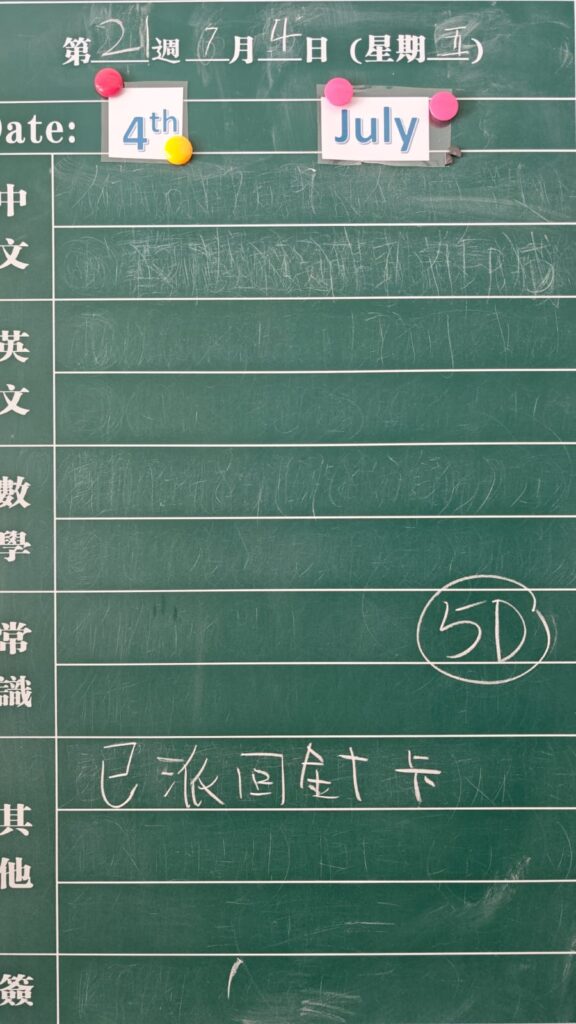 第21週7月4日(星期五)
Date: 4th July
中文
英文
數學
常識
5D
其他
已派回針卡
簽